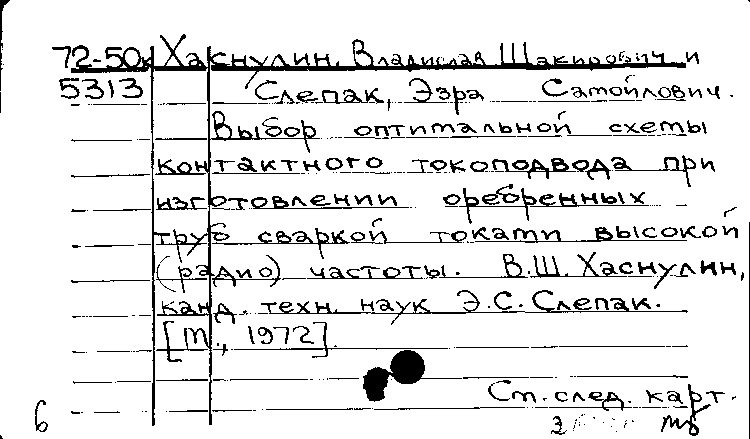 72-50к Хаснулин, Владислав Шакирович и
5313 Слепак, Эзра Самойлович.
Выбор оптимальной схемы
контактного токоподвода при
изготовлении оребренных
труб сваркой токами высокой
(радио) частоты. В.Ш. Хаснулин,
канд. техн. наук Э.С. Слепак.
[М., 1972].
См. след. карт.
б